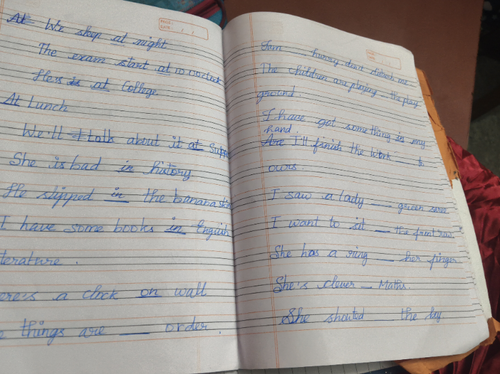 At We sleep at night
The exam start at 10 oclock
He is at College.
At Lunch
We'll talk about it at Supp
She is bad in history
He slipped in the banana
I have some books in English
terature.
ere's a clock on wall
e things are __ order.
The children are playing the play
ground
I have got something in my
hand
I'll finish the work
ours.
I saw a lady __ green saree
I want to sit __ the front row
She has a ring __ her finger
She's clever __ Maths
She shouted the dog